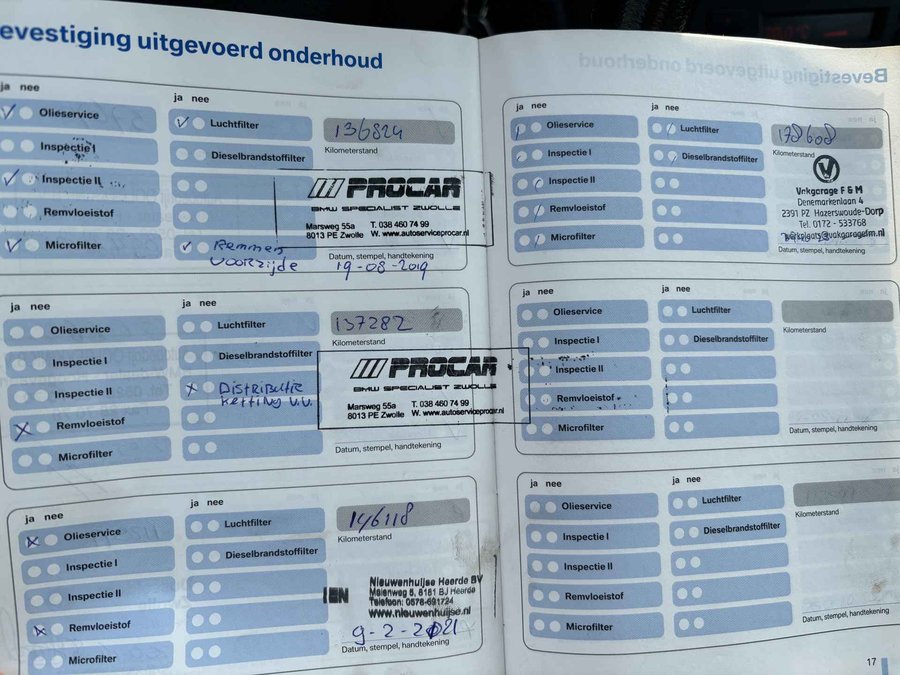 evestiging uitgevoerd onderhoud
ja nee
Olieservice
Inspectie I
Inspectie II
Remvloeistof
Microfilter
ja nee
Luchtfilter
Dieselbrandstoffilter
Remmen
voorzijde
136824
PROCAR
BMW SPECIALIST ZWOLLE
Marsweg 55a T. 038 460 74 99
8013 PE Zwolle W. www.autoserviceprocar.nl
Datum, stempel, handtekening
19-08-2019
ja nee
Olieservice
Inspectie I
Inspectie II
Remvloeistof
Microfilter
ja nee
Luchtfilter
Dieselbrandstoffilter
Distributie
ketting v.v.
137282
Kilometerstand
PROCAR
BMW SPECIALIST ZWOLLE
Marsweg 55a T. 038 460 74 99
8013 PE Zwolle W. www.autoserviceprocar.nl
Datum, stempel, handtekening
ja nee
Olieservice
Inspectie I
Inspectie II
Remvloeistof
Microfilter
ja nee
Luchtfilter
Dieselbrandstoffilter
146118
Kilometerstand
Nieuwenhuijse Heerde BV
Molenweg 5, 8181 BJ Heerde
Telefoon: 0578-691724
www.nieuwenhuijse.nl
9-2-2021
Datum, stempel, handtekening
Bevestiging uitgevoerd onderhoud
ja nee
Olieservice
Inspectie I
Inspectie II
Remvloeistof
Microfilter
ja nee
Luchtfilter
Dieselbrandstoffilter
178608
Kilometerstand
Vakgarage F & M
Denemarkenlaan 4
2391 PZ Hazerswoude-Dorp
Tel. 0172 - 533768
werkplaats@vakgaragefm.nl
Datum, stempel, handtekening
ja nee
Olieservice
Inspectie I
Inspectie II
Remvloeistof
Microfilter
ja nee
Luchtfilter
Dieselbrandstoffilter
Kilometerstand
Datum, stempel, handtekening
ja nee
Olieservice
Inspectie I
Inspectie II
Remvloeistof
Microfilter
ja nee
Luchtfilter
Dieselbrandstoffilter
Kilometerstand
Datum, stempel, handtekening
17